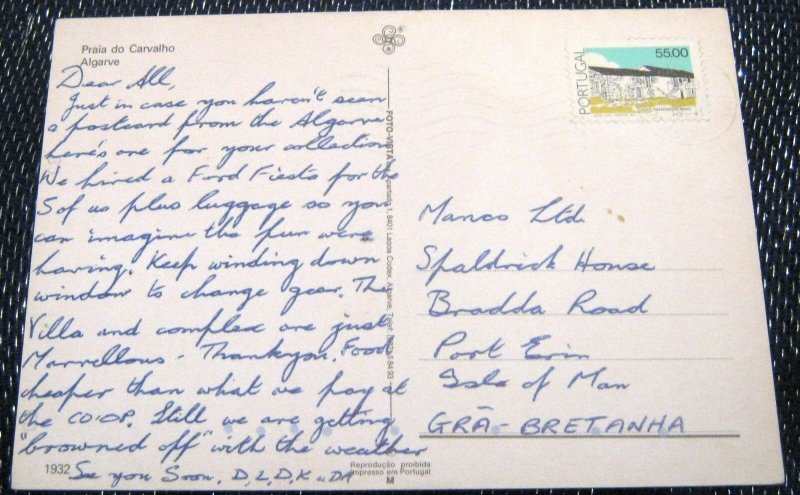 Praia do Carvalho
Algarve
Dear All,
Just in case you haven't seen
a postcard from the Algarve
here's one for your collection
We hired a Ford Fiesta for the
5 of us plus luggage so you
can imagine the fun were
having. Keep winding down
window to change gear. The
Villa and complex are just
Marvellous - Thankyou. Food
cheaper than what we pay at
the CO-OP. Still we are getting
"browned off" with the weather
See you Soon. D, L, D, K
1932
FOTO-VISTA
Reprodução proibida
Impresso em Portugal
M
PORTUGAL
55.00
Manco Ltd.
Spaldrick House
Bradda Road
Port Erin
Isle of Man
GRÃ-BRETANHA